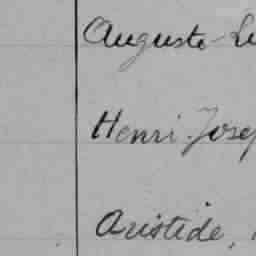 Auguste-Lu
Henri-Josep
Aristide,